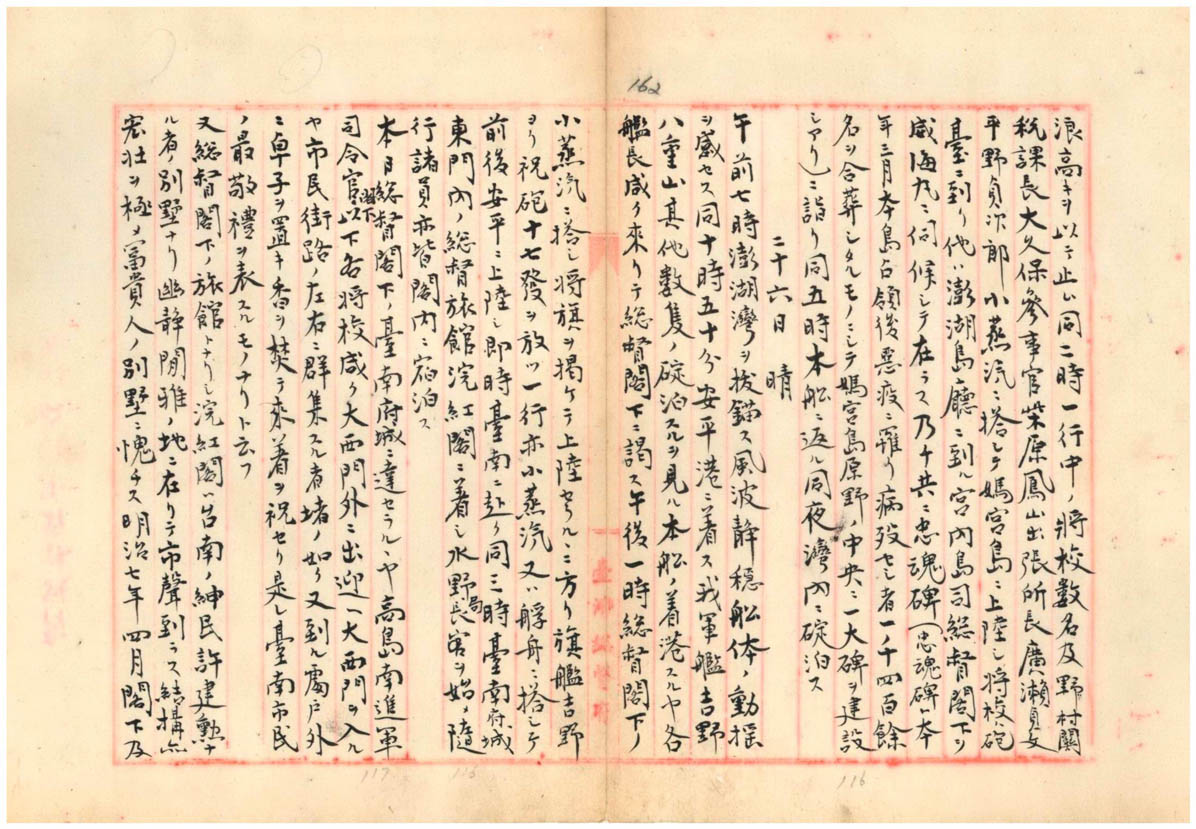 162
浪高キヲ以テ止ム同二時一行中ノ將校數名及野村關
税課長大久保參事官柴原鳳山出張所長廣瀨貞文
平野貞次郎小蒸汽ニ搭シテ媽宮島ニ上陸シ將校ハ砲
臺ニ到リ他ハ澎湖島廳ニ到ル宮內島司總督閣下ヲ
威海丸ニ伺候シテ在ラス乃チ共ニ忠魂碑(忠魂碑本
年三月本島占領後惡疫ニ罹リ病歿セシ者一千四百餘
名ヲ合葬シタルモノニシテ媽宮島原野ノ中央ニ一大碑ヲ建設
シアリ)ニ詣リ同五時本船ニ返ル同夜灣內ニ碇泊ス
二十六日 晴
午前七時澎湖灣ヲ拔錨ス風波靜穩船体ノ動搖
ヲ感セス同十時五十分安平港ニ着ス我軍艦吉野
八重山其他數隻ノ碇泊スルヲ見ル本船ノ着港スルヤ各
艦長咸ク來リテ総督閣下ニ謁ス午後一時総督閣下ノ
小蒸汽ニ搭シ將旗ヲ揭ケテ上陸セラルヽニ方リ旗艦吉野
ヨリ祝砲十七發ヲ放ツ一行亦小蒸汽又ハ艀舟ニ搭シテ
前後安平ニ上陸シ即時臺南ニ赴ク同三時臺南府城
東門內ノ総督旅館浣紅閣ニ着シ水野局長官ヲ始メ隨
行諸員亦皆閣內ニ宿泊ス
本日総督閣下ノ臺南府城ニ達セラルヽヤ高島南進軍
司令官閣下以下各將校咸ク大西門外ニ出迎ヘ大西門ヲ入ル
ヤ市民街路ノ左右ニ群集スル者堵ノ如ク又到ル處戶外
ニ卓子ヲ置キ香ヲ焚テ來着ヲ祝セリ是レ臺南市民
ノ最敬禮ヲ表スルモノナリト云フ
又総督閣下ノ旅館トナリシ浣紅閣ハ台南ノ紳民許建勲ナ
ル者ノ別墅ナリ幽靜閒雅ノ地ニ在リテ市聲到ラス結構亦
宏壯ヲ極メ富貴人ノ別墅ニ愧チス明治七年四月閣下及
116
116
117